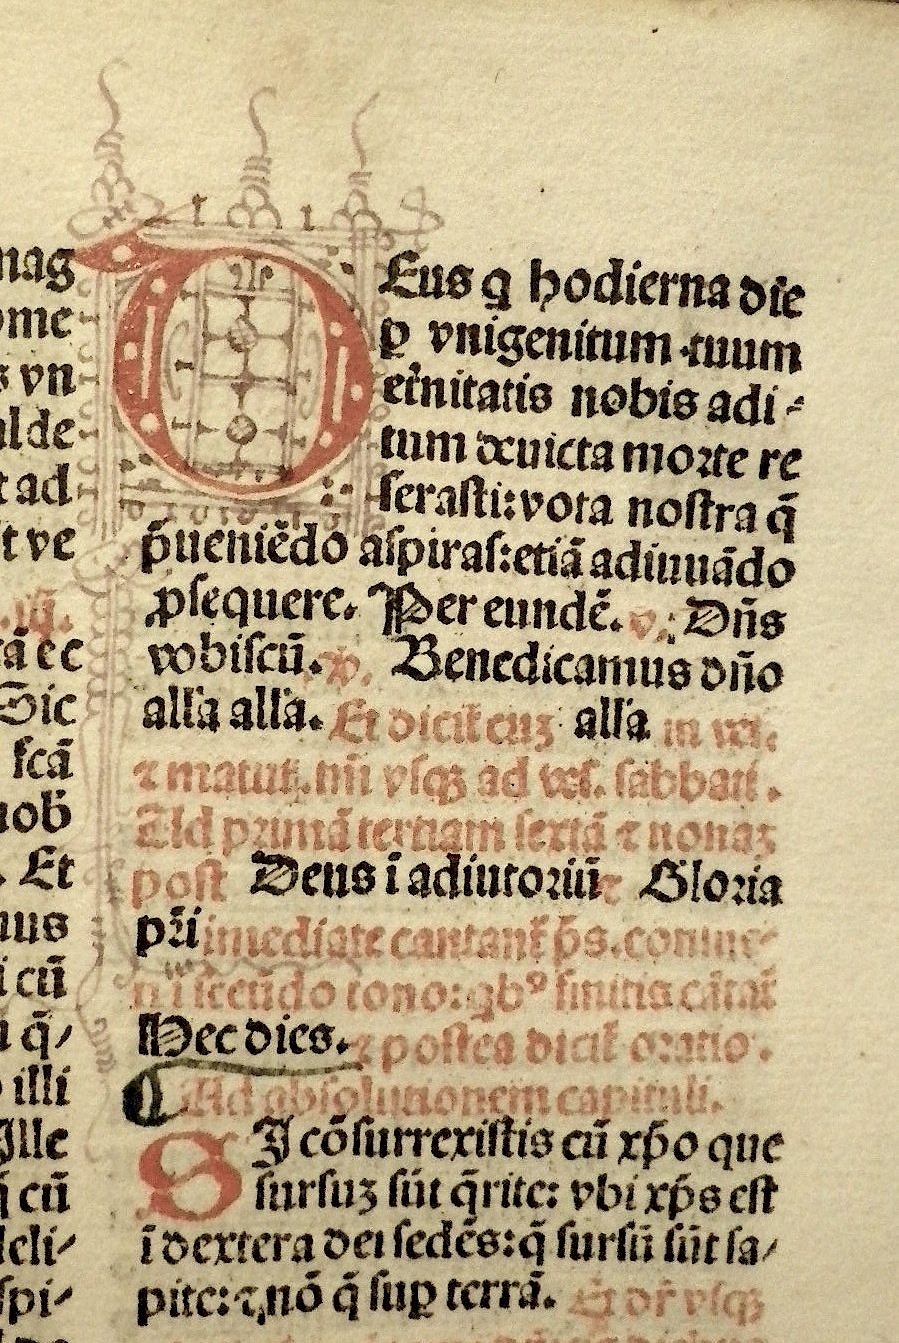 nag
ome
s vn
alde
t ad
t ve
.iij.
rā ec
Sic
scā
nob
. Et
nus
i cū
a q̄/
illi
Ille
q̄ cū
deli/
spi/
DEus q hodierna die
ꝑ vnigenitum tuum
et̃nitatis nobis adi-
tum deuicta morte re
serasti: vota nostra q̄
p̄ueniēdo aspiras: etiā adiuuādo
ꝓsequere. Per eundē. v. Dn̄s
vobiscū. Benedicamus dn̄o
all'a all'a. Et dicit̃ cuz all'a in
⁊ matut̃. vsqꝫ ad ves. sabbati.
Ad primā tertiam sextā ⁊ nonaz
post Deus ī adiutoriū ⁊ Gloria
pr̃i imediate cantant̃ p̄s. conue-
ni scd̃o tono: qb⁹ finitis cātat̃
Hec dies. ⁊ postea dicit̃ oratio.
Ad absolutionem capituli.
SI cōsurrexistis cū xp̄o que
sursuz sūt q̄rite: vbi xp̄s est
ī dextera dei sedēs: q̄ sursū sūt sa/
pite: ⁊ nō q̄ suꝑ terrā. Et dr̄ vsqꝫ